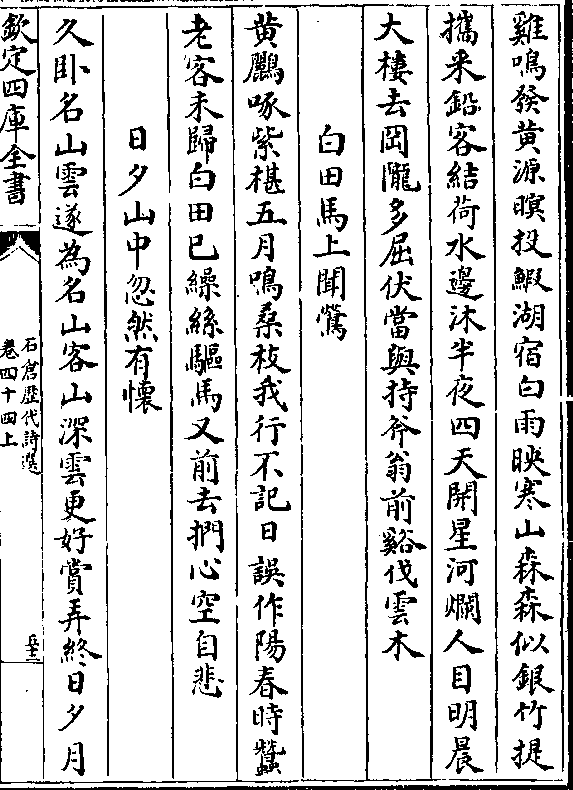 雞鳴發黄源暝投鰕湖宿白雨映寒山森森似銀竹提
攜采鉛客結荷水邊沐半夜四天開星河爛人目明晨
大樓去岡隴多屈伏當與持斧翁前谿伐雲木
白田馬上聞鶯
黄鸝啄紫椹五月鳴桑枝我行不記日誤作陽春時蠶
老客未歸白田已繰絲驅馬又前去捫心空自悲
日夕山中忽然有懷
久卧名山雲遂為名山客山深雲更好賞弄終日夕月
欽定四庫全書
石倉歷代詩選
卷四十四上